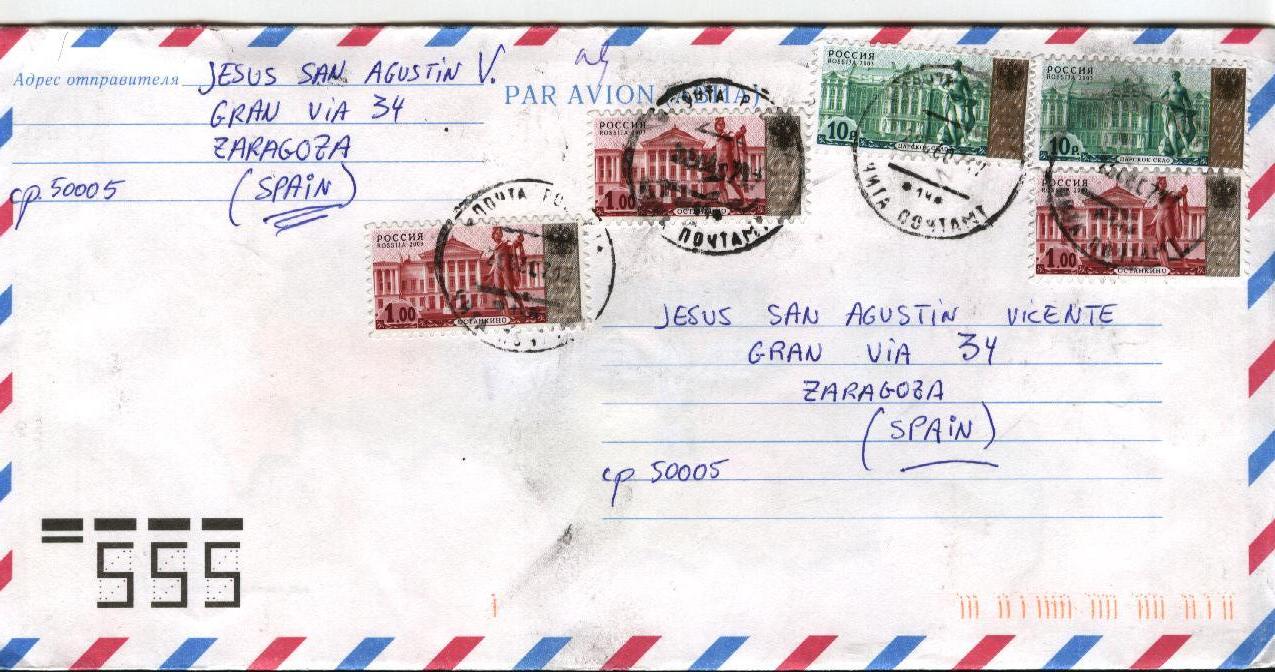 Адрес отправителя JESUS SAN AGUSTIN V.
GRAN VIA 34
ZARAGOZA
cp. 50005 (SPAIN)
PAR AVION
РОССИЯ
ROSSIJA 2003
10р
ЦАРСКОЕ СЕЛО
РОССИЯ
ROSSIJA 2003
10р
ЦАРСКОЕ СЕЛО
РОССИЯ
ROSSIJA 2003
1.00
ОСТАНКИНО
РОССИЯ
ROSSIJA 2003
1.00
ОСТАНКИНО
РОССИЯ
ROSSIJA 2003
1.00
ОСТАНКИНО
ЧИТА ПОЧТАМТ
ПОЧТАМТ
ПОЧТА
JESUS SAN AGUSTIN VICENTE
GRAN VIA 34
ZARAGOZA
(SPAIN)
cp 50005
555